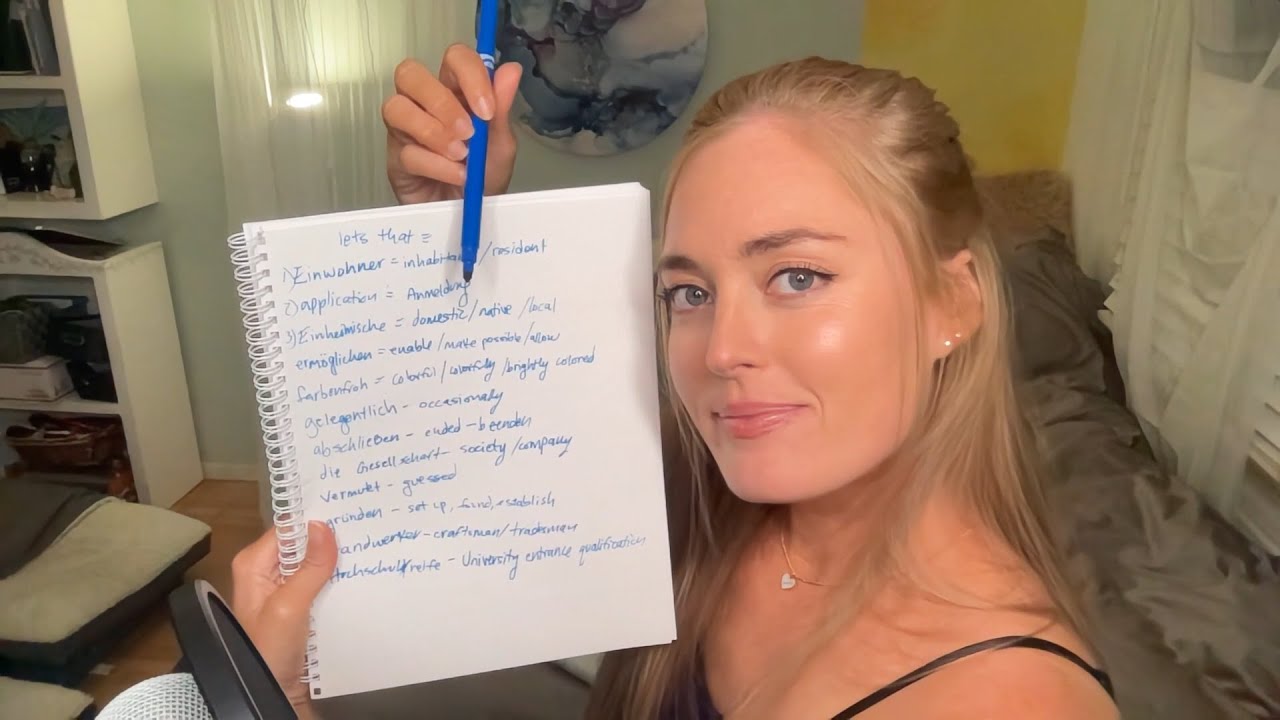 lets that =
1) Einwohner = inhabita /resident
2) application = Anmeldung
3) Einheimische = domestic/native/local
ermöglichen = enable/make possible/allow
farbenfroh = colorful/colorfully/brightly colored
gelegentlich - occasionally
abschließen - ended - beenden
die Gesellschaft - society/company
vermutet - guessed
gründen - set up, found, establish
andwerker - craftsman/tradesman
Hochschulreife - University entrance qualification